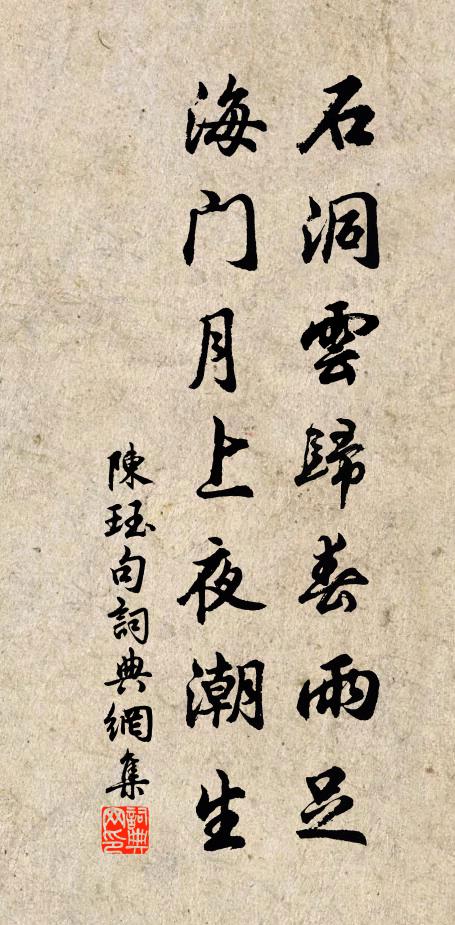 石洞雲歸春雨足
海门月上夜潮生
陳珏句詞典網集
詞典
网印